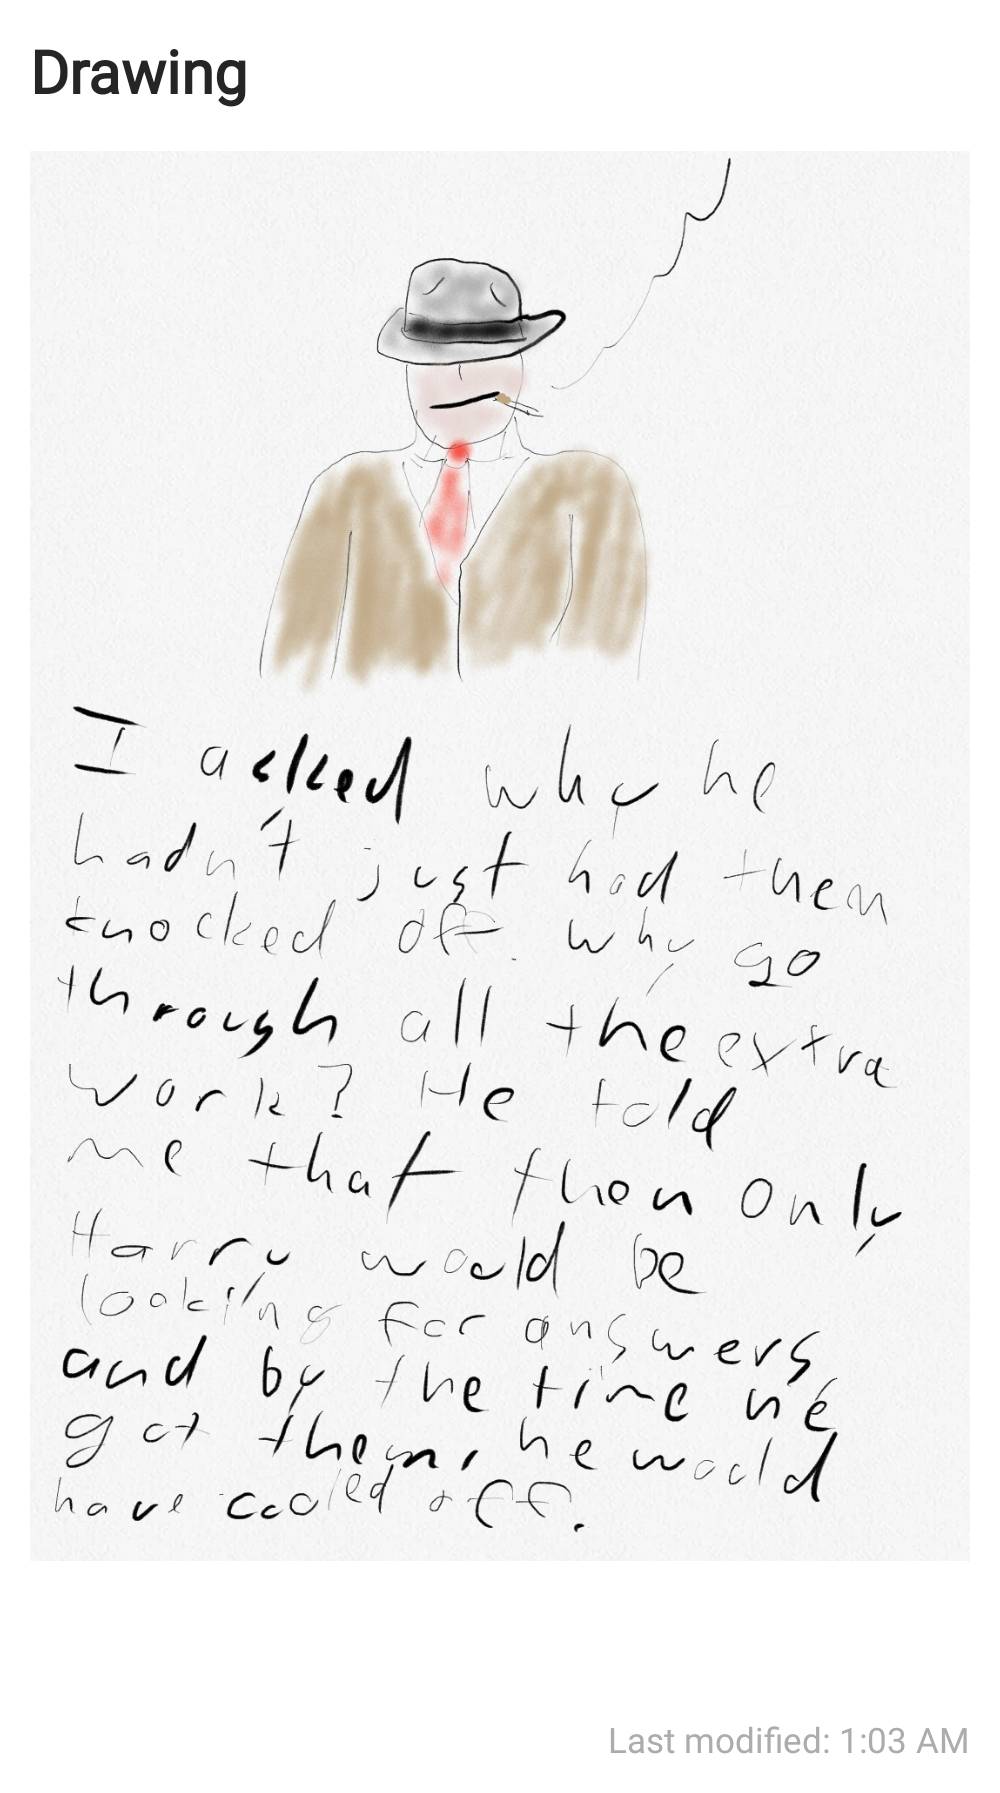 Drawing
I asked why he
hadn't just had them
knocked off. Why go
through all the extra
work? He told
me that then only
Harry would be
looking for answers,
and by the time he
got them, he would
have cooled off.
Last modified: 1:03 AM